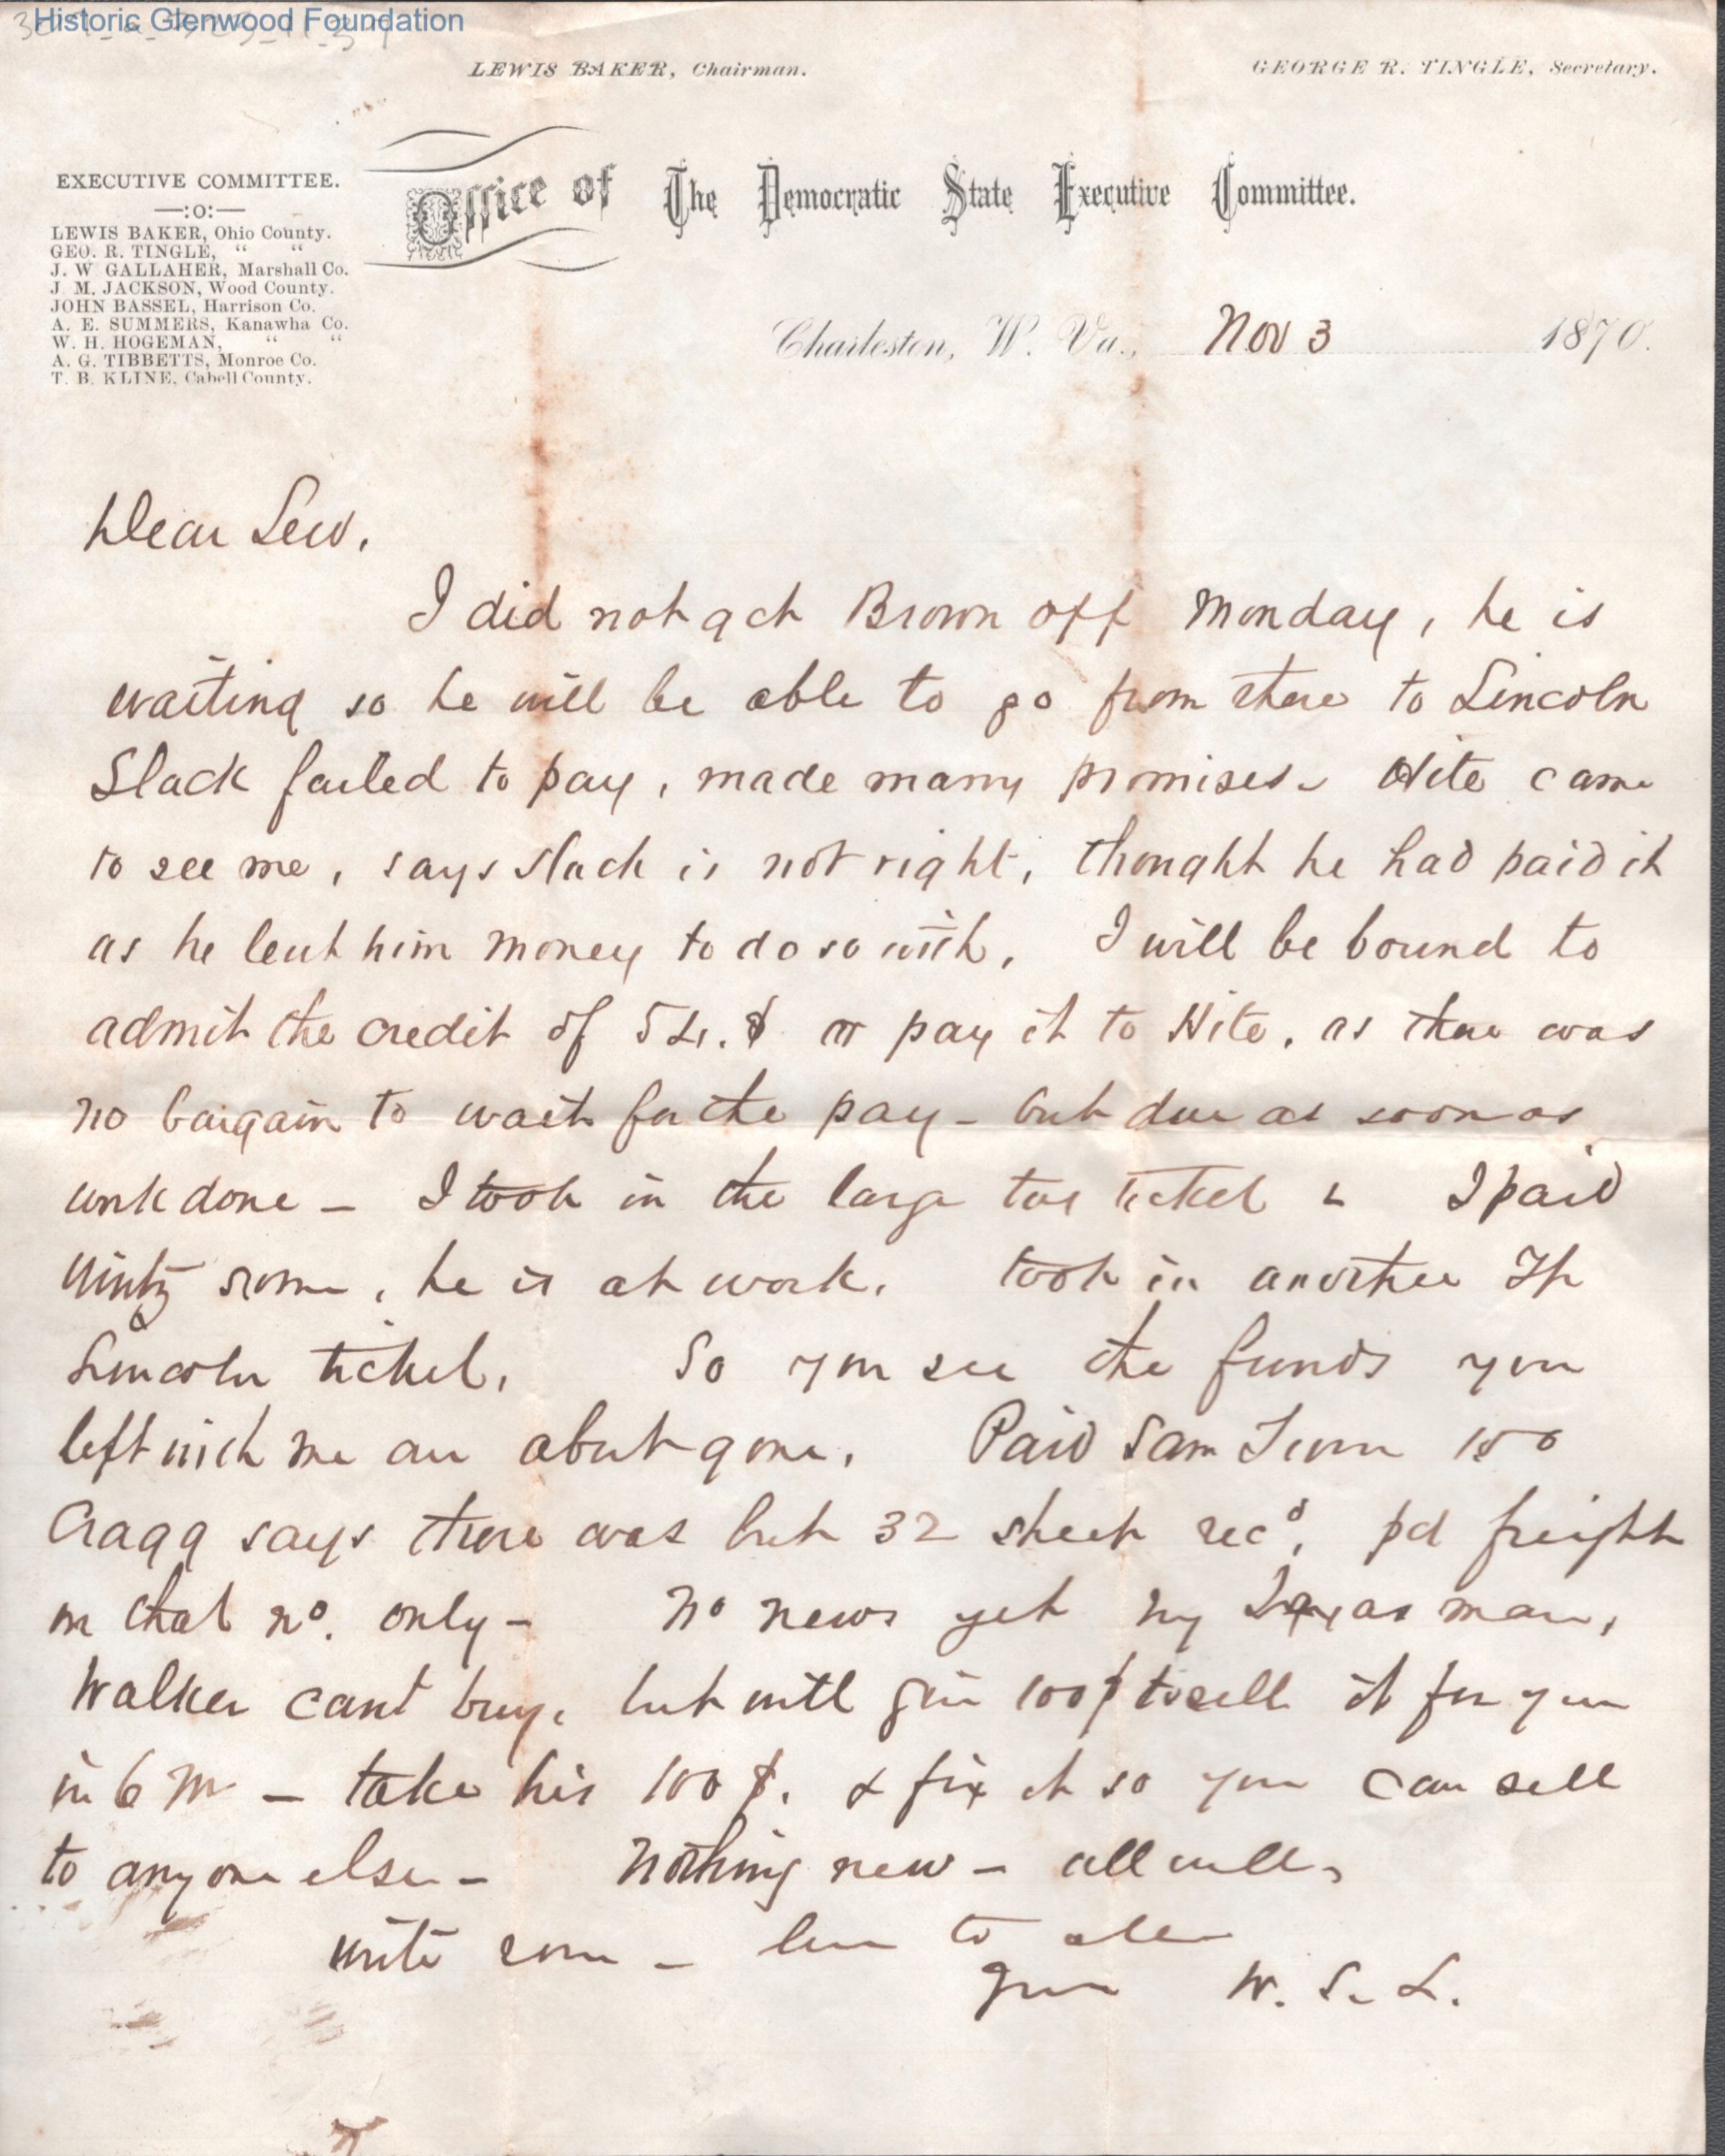 Historic Glenwood Foundation
LEWIS BAKER, Chairman.
GEORGE R. TINGLE, Secretary.
EXECUTIVE COMMITTEE.
—:o:—
LEWIS BAKER, Ohio County.
GEO. R. TINGLE, " "
J. W GALLAHER, Marshall Co.
J M. JACKSON, Wood County.
JOHN BASSEL, Harrison Co.
A. E. SUMMERS, Kanawha Co.
W. H. HOGEMAN, " "
A. G. TIBBETTS, Monroe Co.
T. B. KLINE, Cabell County.
Office of The Democratic State Executive Committee.
Charleston, W. Va., Nov 3 1870.
Dear Lew.
I did not get Brown off Monday, he is
waiting so he will be able to go from there to Lincoln
Slack failed to pay, made many promises - Hite came
to see me, says Slack is not right, thought he had paid it
as he lent him money to do so with. I will be bound to
admit the credit of 54.$ or pay it to Hite, as there was
no bargain to wait for the pay - but due as soon as
work done - I took in the large tax ticket & I paid
some, he is at work. took in another
Lincoln ticket. So you see the funds you
left with me are about gone. Paid Sam
Cragg says there was but 32 sheep recd, pd freight
on that no. only - No news yet my Texas man,
Walker cant buy, but will give 100$ to sell it for you
in 6 M - take his 100$. & fix it so you can sell
to anyone else - Nothing new - all well,
write soon - love to all
Yours W. S. L.